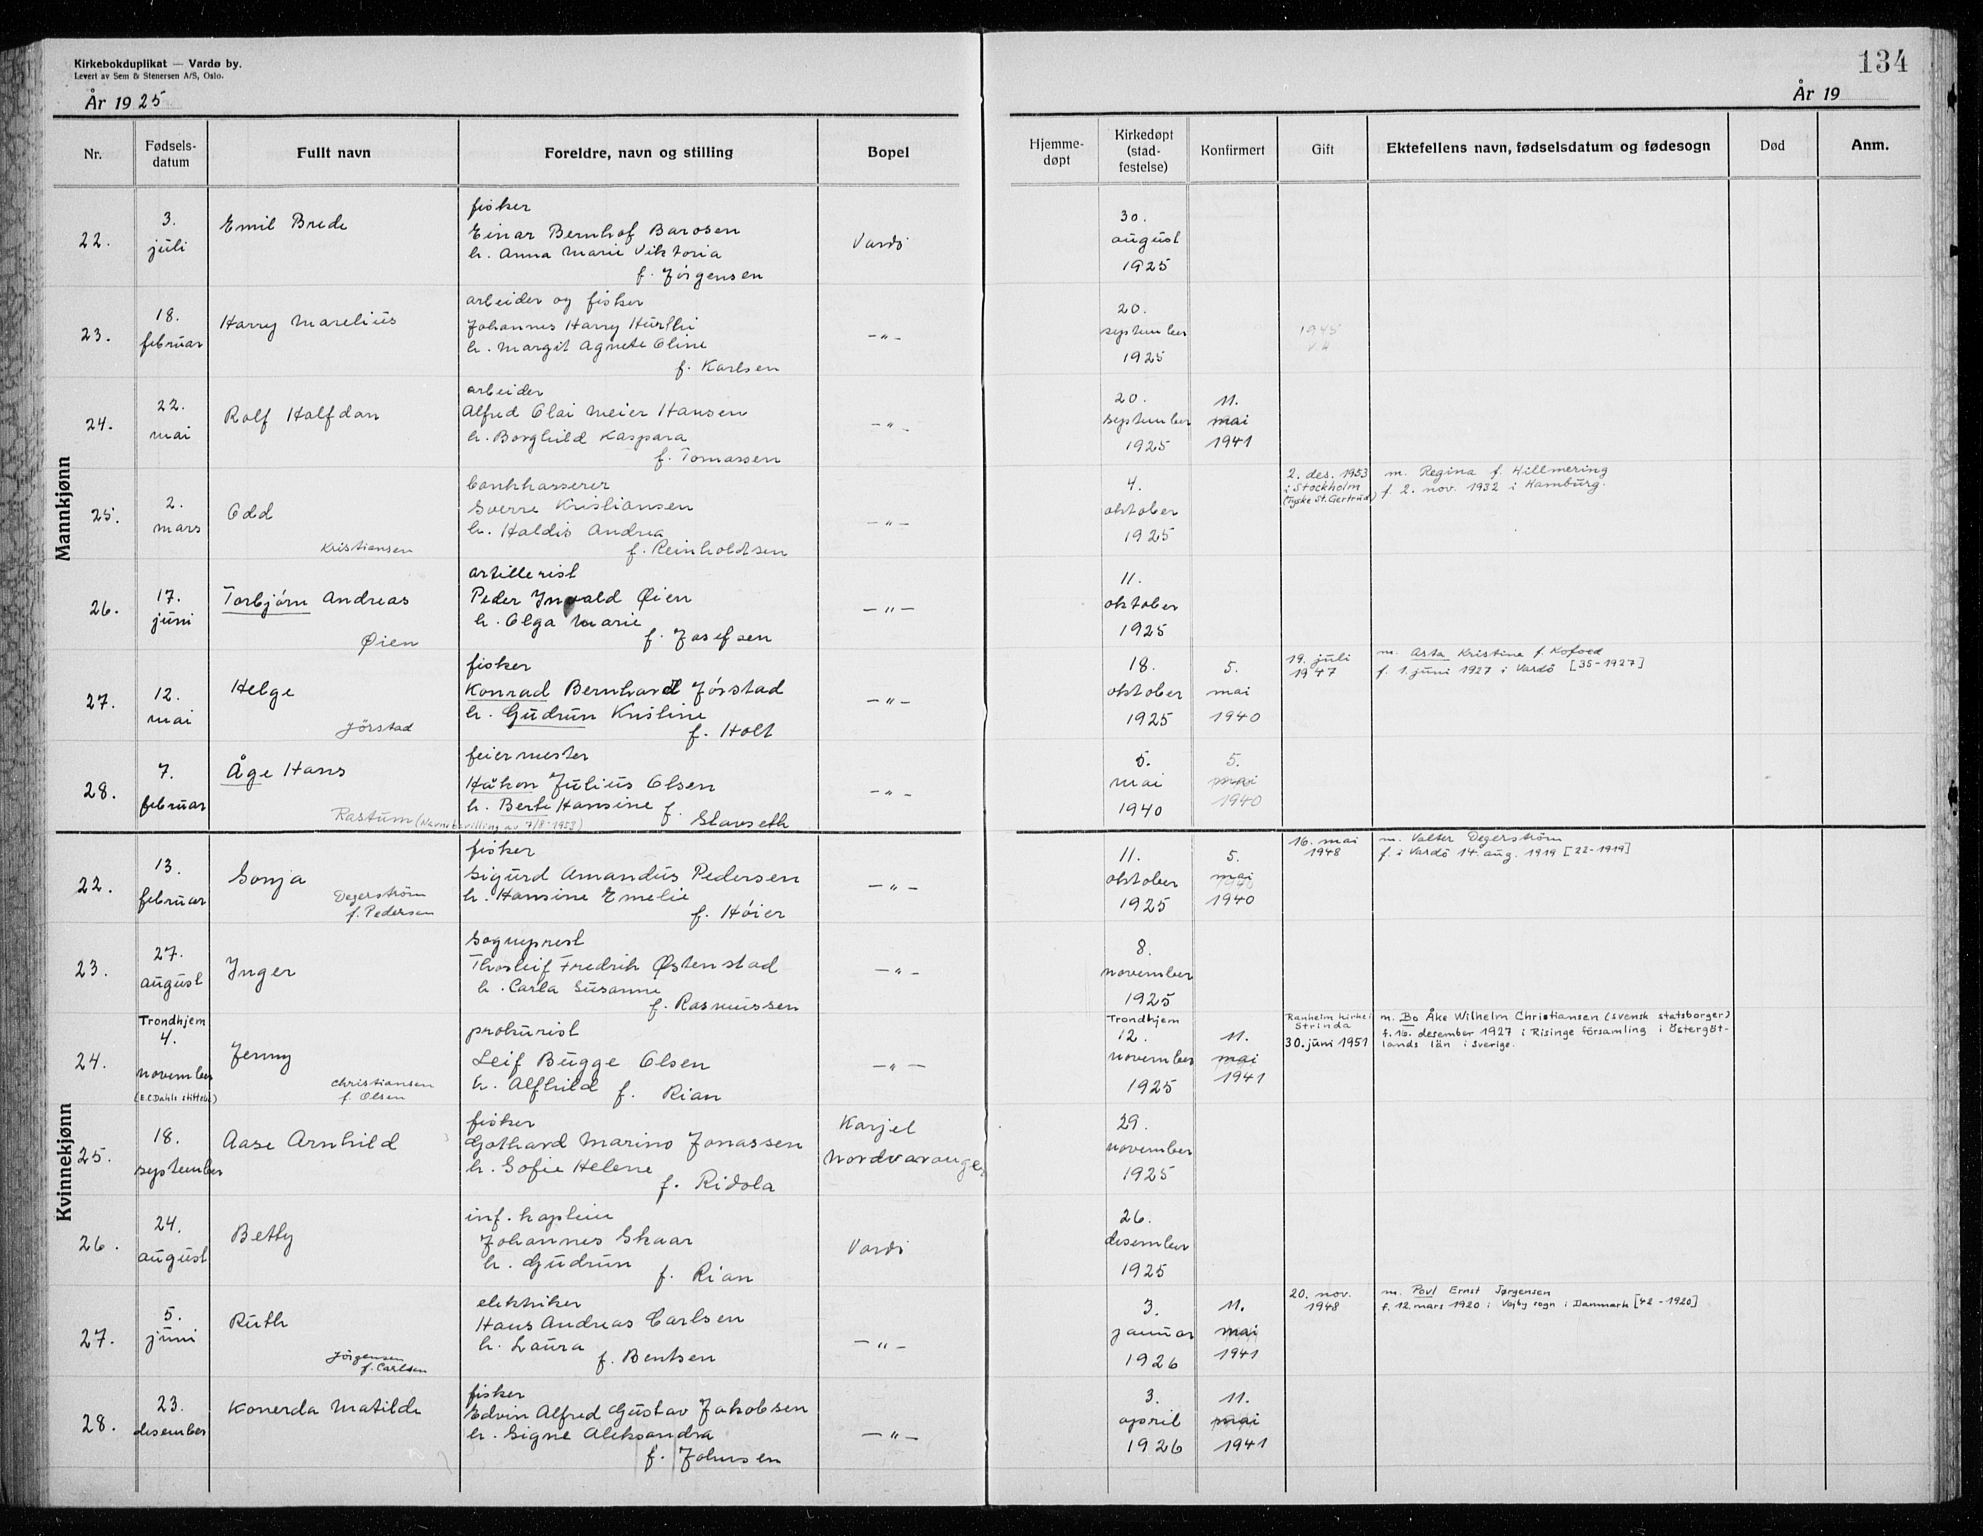 Kirkebokduplikat — Vardø by.
Levert av Sem & Stenersen A/S, Oslo.
134
År 1925
År 19
Nr.
Fødsels-
datum
Fullt navn
Foreldre, navn og stilling
Bopel
Hjemme-
døpt
Kirkedøpt
(stad-
festelse)
Konfirmert
Gift
Ektefellens navn, fødselsdatum og fødesogn
Død
Anm.
Mannkjønn
22.
3.
juli
Emil Brede
fisker
Einar Bernhof Barosen
h. Anna Marie Viktoria
f. Jørgensen
Vardö
30.
august
1925
23.
18.
februar
Harry Marelius
arbeider og fisker
Johannes Harry
h. Margit Agnete Oline
f. Karlsen
—"—
20.
september
1925
1945
24.
22.
mai
Rolf Halfdan
arbeider
Alfred Olai Meier Hansen
h. Borghild Kaspara
f. Tomassen
—"—
20.
september
1925
11.
mai
1941
25.
2.
mars
Odd
Kristiansen
bankkasserer
Sverre Kristiansen
h. Haldis Andrea
f. Reinholdtsen
—"—
4.
oktober
1925
2. des. 1953
i Stockholm
(Tyske St. Gertrud)
m. Regina f. Hillmering
f. 2. nov. 1932 i Hamburg.
26.
17.
juni
Torbjørn Andreas
Øien
artillerist
Peder Ingvald Øien
h. Olga Marie
f. Josefsen
—"—
11.
oktober
1925
27.
12.
mai
Helge
Jörstad
fisker
Konrad Bernhard Jørstad
h. Gudrun Kristine
f. Holt
—"—
18.
oktober
1925
5.
mai
1940
19. juli
1947
m. Asta Kristine f. Kofoed
f. 1. juni 1927 i Vardö [35-1927]
28.
7.
februar
Åge Hans
Rastum (Navnebevilling av 7/8-1953)
feiermester
Håkon Julius Olsen
h. Berte Hansine f. Slavseth
—"—
5.
mai
1940
5.
mai
1940
Kvinnekjønn
22.
13.
februar
Sonja
Degerström
f. Pedersen
fisker
Sigurd Amandus Pedersen
h. Hansine Emelie
f. Höier
—"—
11.
oktober
1925
5.
mai
1940
1940
16. mai
1948
m. Valter Degerström
f. i Vardö 14. aug. 1919 [22-1919]
23.
27.
august
Inger
Sogneprest
Thorleif Fredrik Østenstad
h. Carla Susanne
f. Rasmussen
—"—
8.
november
1925
24.
Trondhjem
4.
november
(E.C.Dahls stiftelse)
Jenny
Christiansen
f. Olsen
prokurist
Leif Bugge Olsen
h. Alfhild f. Rian
—"—
Trondhjem
12.
november
1925
11.
mai
1941
Ranheim kirke i
Strinda
30. juni 1951
m. Bo Åke Wilhelm Christiansen (svensk statsborger)
f. 16. desember 1927 i Risinge församling i Östergöt-
lands län i Sverige.
25.
18.
september
Aase Arnhild
fisker
Gothard Marino Jonassen
h. Sofie Helene
f. Ridola
Karjel
Nordvaranger
29.
november
1925
26.
24.
august
Betty
inf. kaptein
Johannes Skaar
h. Gudrun
f. Rian
Vardö
26.
desember
1925
27.
5.
juni
Ruth
Jörgensen
f. Carlsen
elektriker
Hans Andreas Carlsen
h. Laura
f. Bentsen
—"—
3.
januar
1926
11.
mai
1941
20. nov.
1948
m. Povl Ernst Jørgensen
f. 12. mars 1920 i Vejby sogn i Danmark [42-1920]
28.
23.
desember
Konerda Matilde
fisker
Edvin Alfred Gustav Jakobsen
h. Signe Aleksandra
f. Johnsen
—"—
3.
april
1926
11.
mai
1941